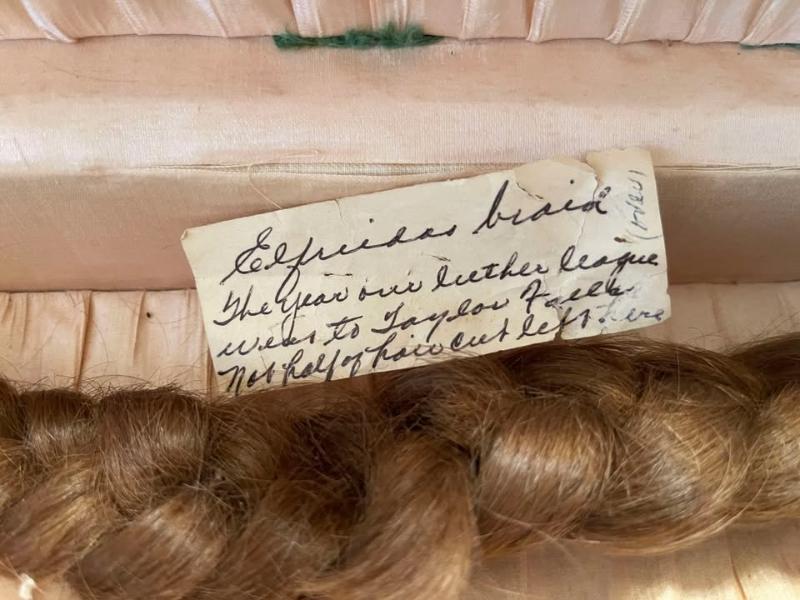 Elfriedas braid
(over)
The year our luther league
went to Taylor Falls
Not half of hair cut left here